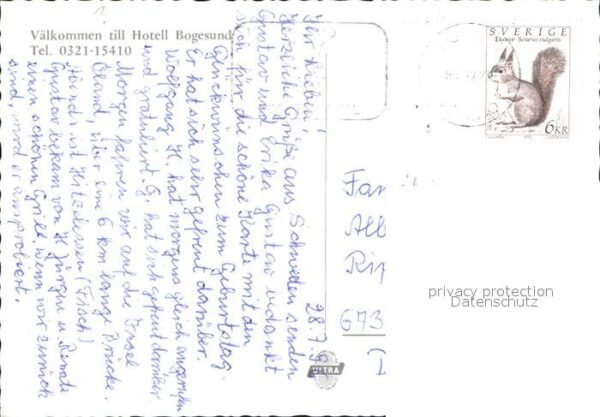 Välkommen till Hotell Bogesund
Tel. 0321-15410
SVERIGE
Ekorre Sciurus vulgaris
6 KR
28.7.9
Ihr Lieben!
Herzliche Grüße aus Schweden senden
Gustav und Erika. Gustav bedankt
sich für die schöne Karte mit den
Glückwünschen zum Geburtstag.
Er hat sich sehr gefreut darüber.
Wolfgang H. hat morgens gleich angerufen
und gratuliert. G. hat sich gefreut darüber
Morgen fahren wir auf die Insel
Öland, über eine 6 km lange Brücke.
Abends ist Hitzeessen (Fisch)
Gustav bekam von H. Jürgen u. Renate
einen schönen Grill. wenn wir zurück
sind, wird er ausprobiert.
Fam
All
Rip
673
ULTRA
privacy protection
Datenschutz